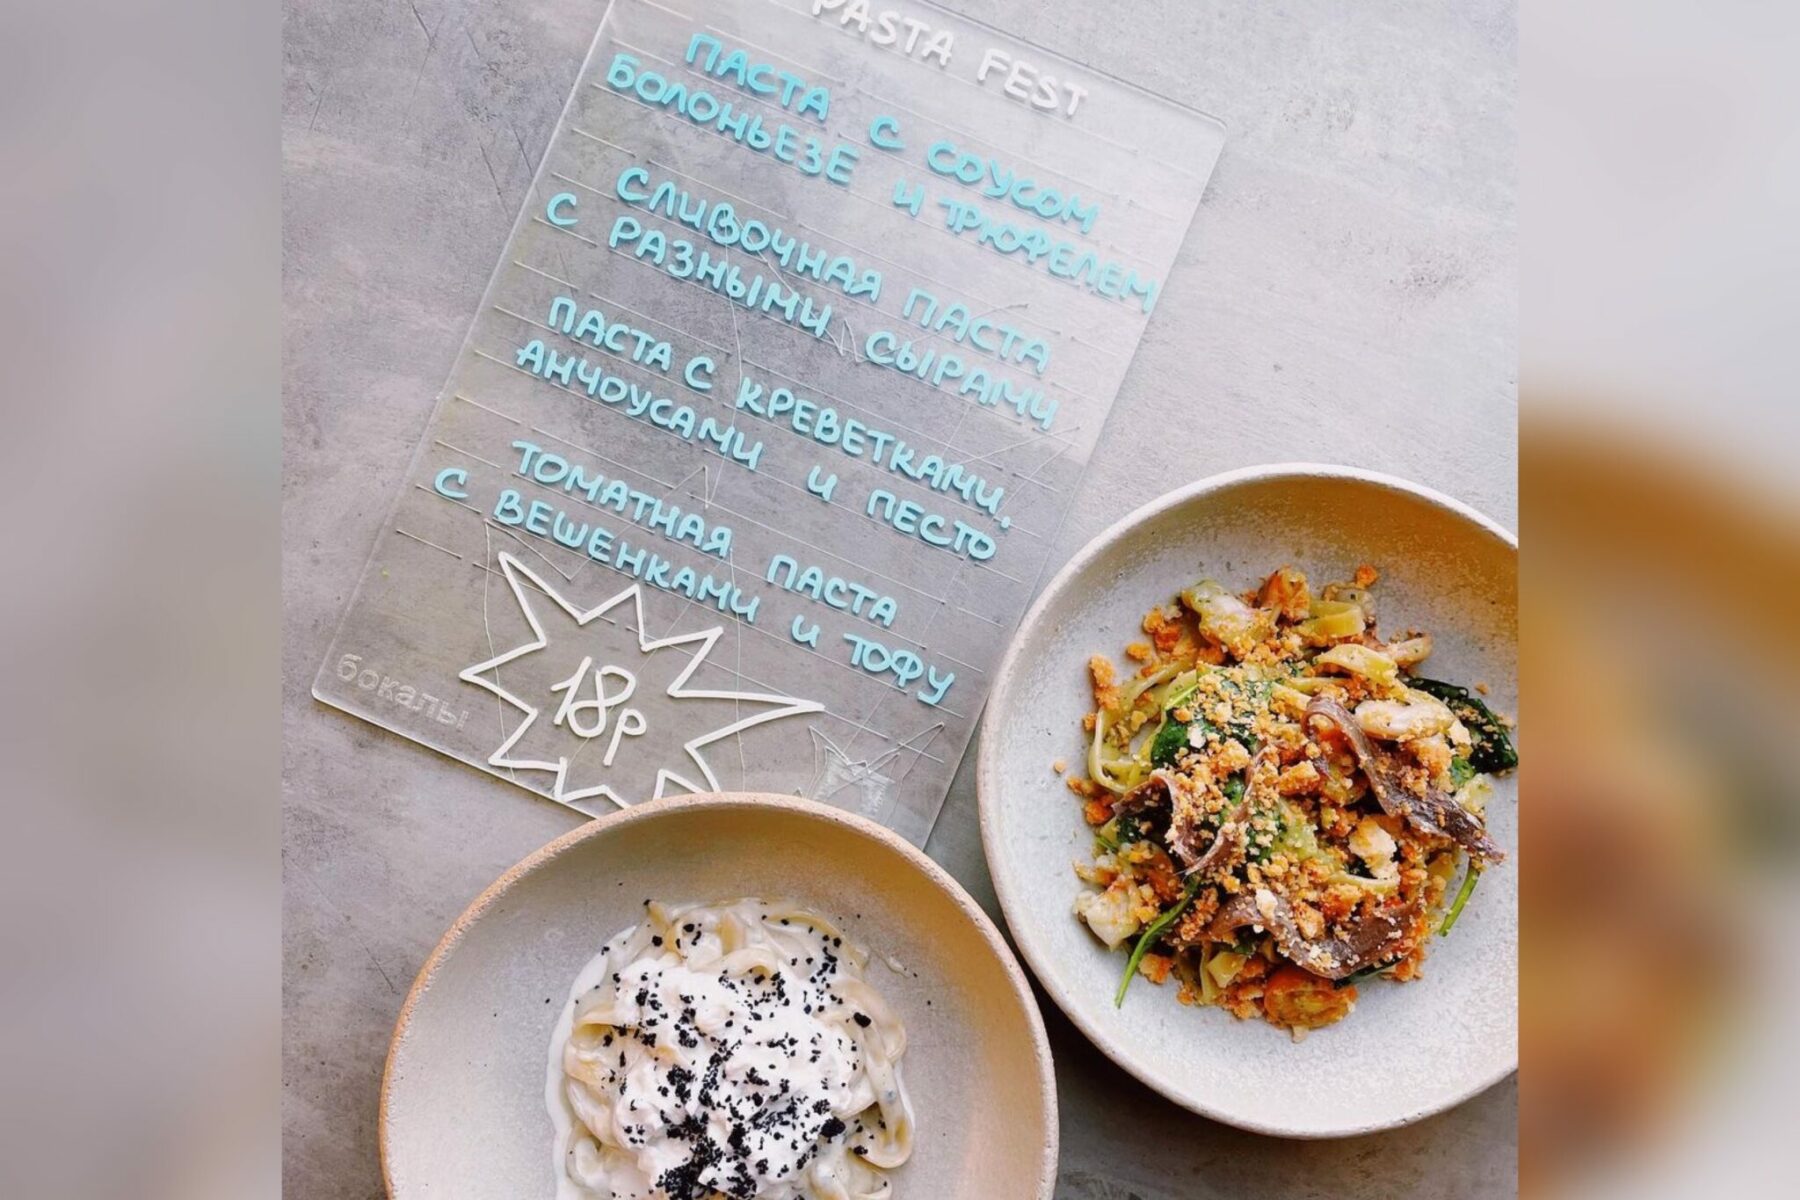 PASTA FEST
ПАСТА С СОУСОМ
БОЛОНЬЕЗЕ И ТРЮФЕЛЕМ
СЛИВОЧНАЯ ПАСТА
С РАЗНЫМИ СЫРАМИ
ПАСТА С КРЕВЕТКАМИ,
АНЧОУСАМИ И ПЕСТО
ТОМАТНАЯ ПАСТА
С ВЕШЕНКАМИ И ТОФУ
18р
бокалы